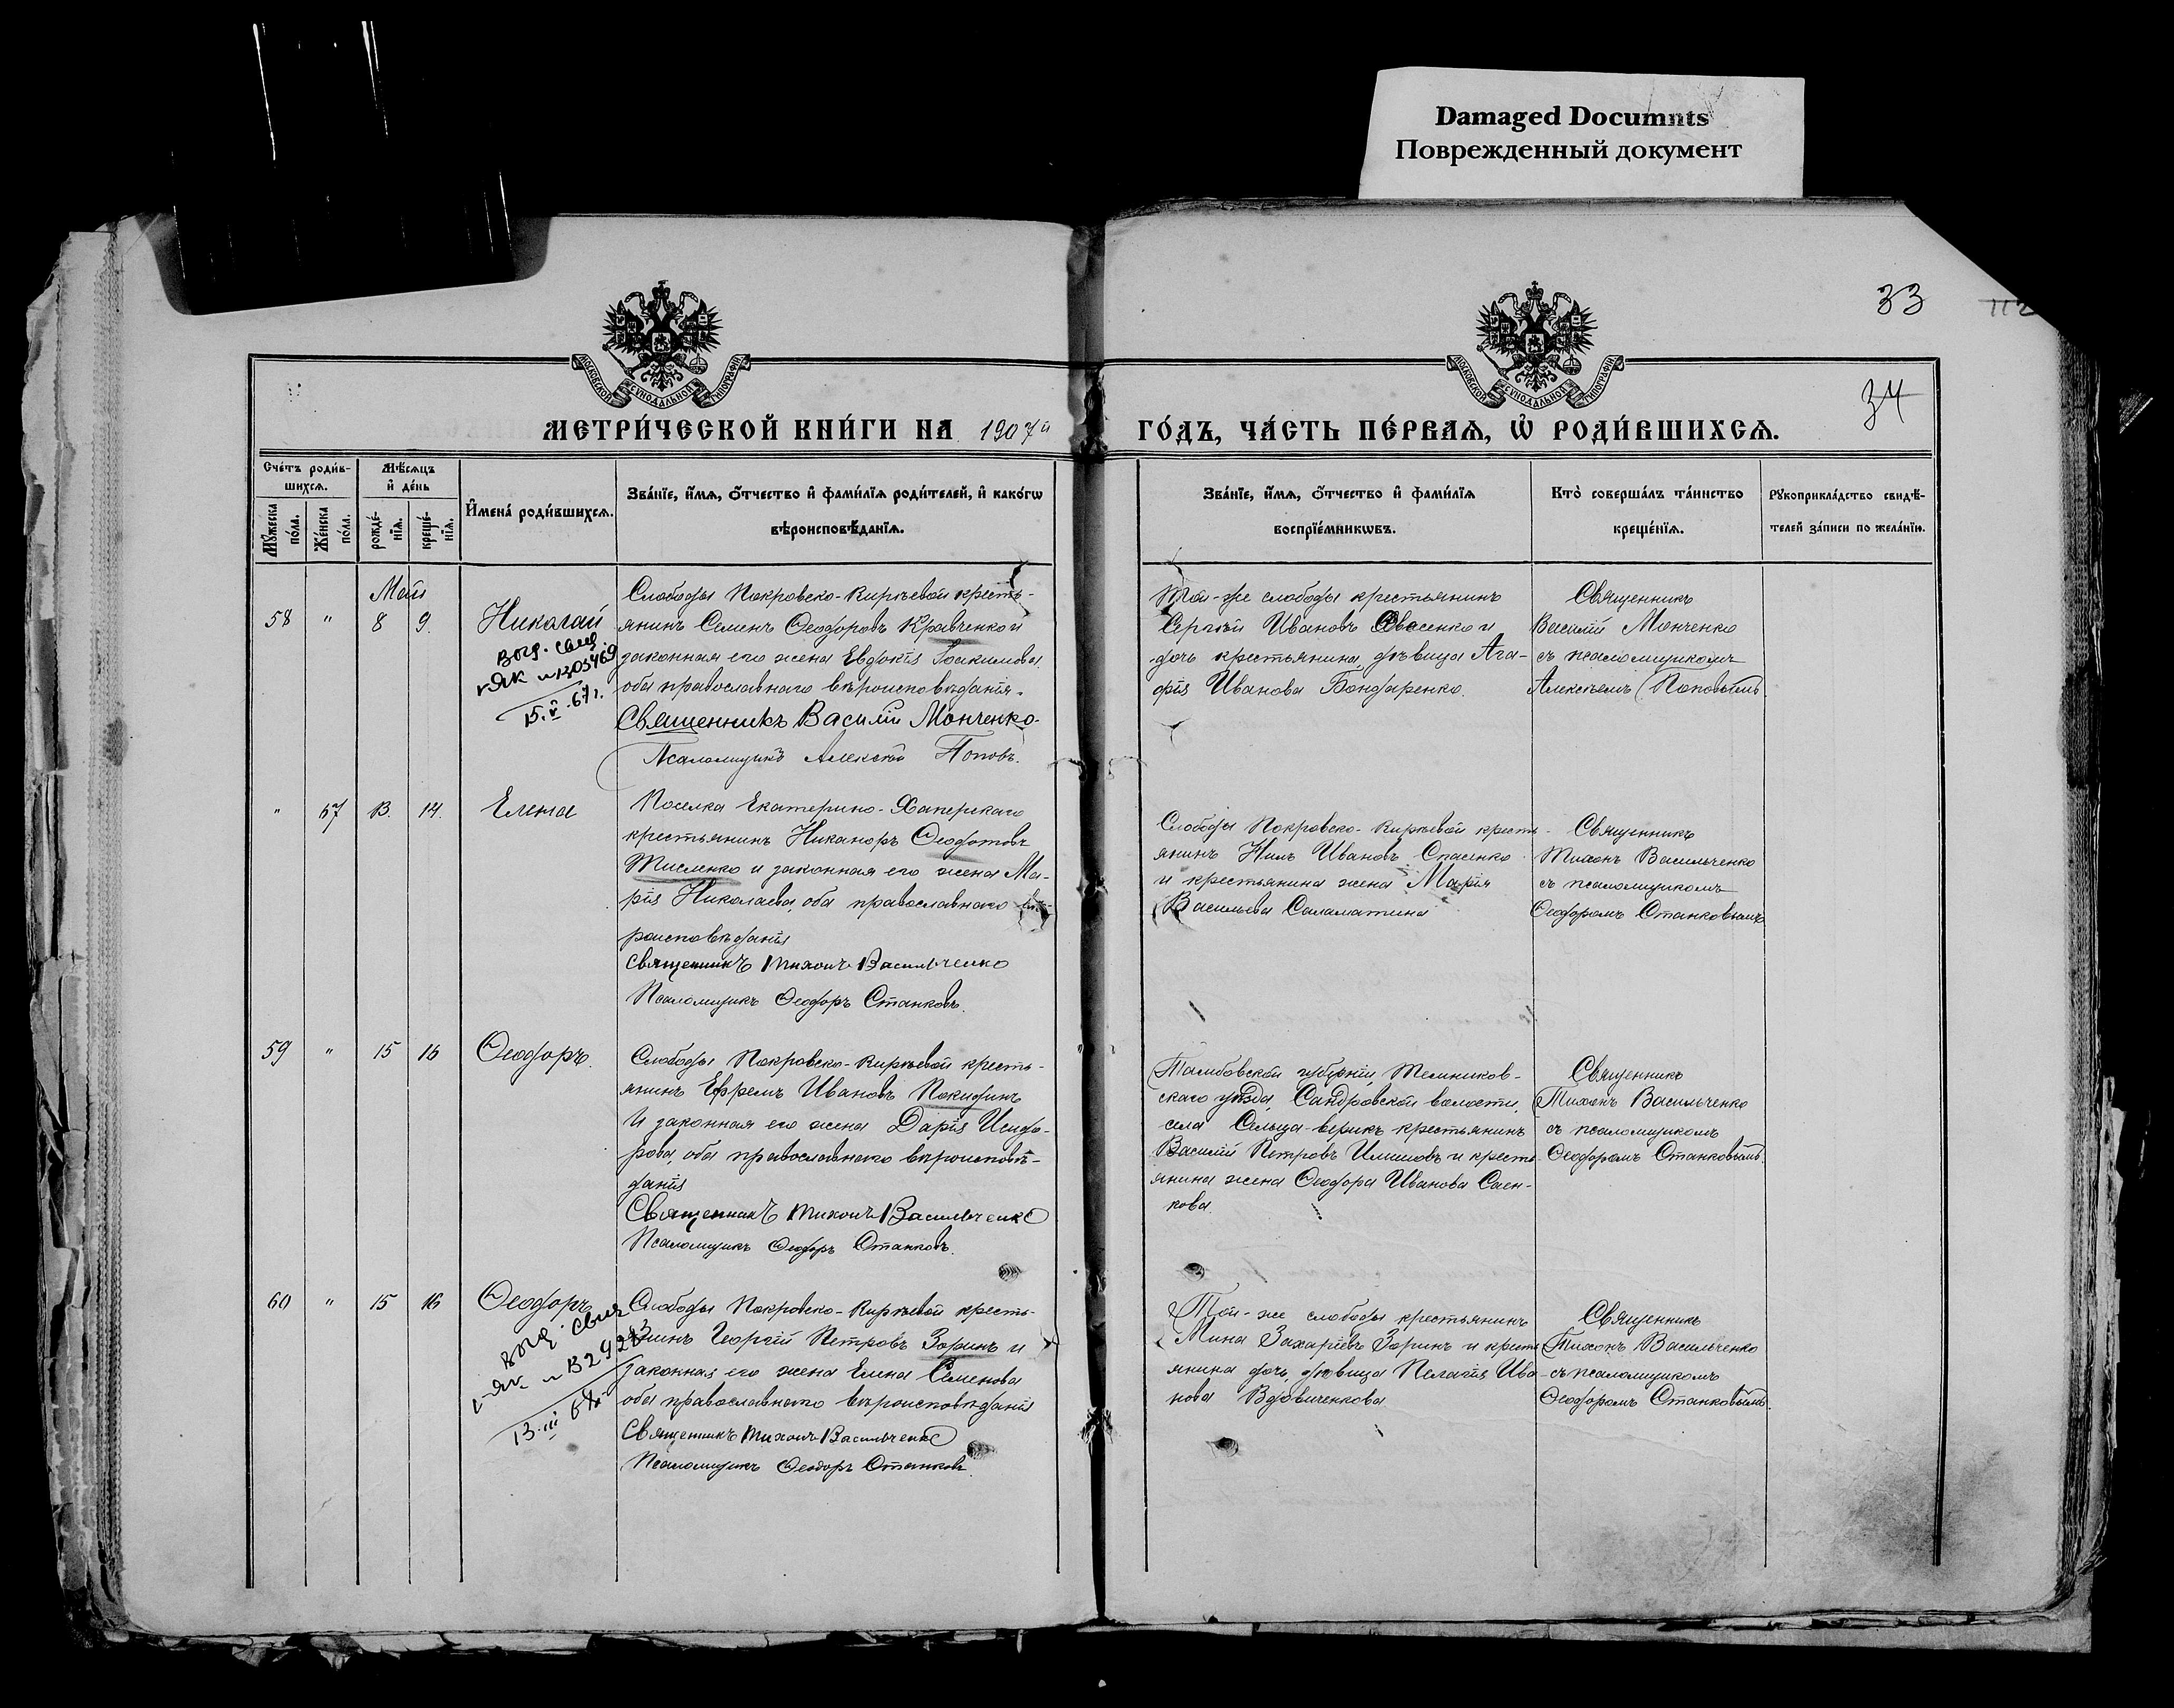 Damaged Documnts
Поврежденный документ
33
34
МОСКОВСКОЙ СѴНОДАЛЬНОЙ ТИПОГРАФІИ
МОСКОВСКОЙ СѴНОДАЛЬНОЙ ТИПОГРАФІИ
МЕТРИ́ЧЕСКОЙ КНИ́ГИ НА 1907й
ГО́ДЪ, ЧА́СТЬ ПЕ́РВАѦ, Ѡ РОДИ́ВШИХСѦ.
Сче́тъ роди́в-
шихсѧ.
Мѣ́сѧцъ
и҆ де́нь
И҆мена́ роди́вшихсѧ.
Зва́нїе, и҆́мѧ, ѻ҆́тчество и҆ фами́лїѧ роди́телей, и҆ како́гѡ
вѣроисповѣ́данїѧ.
Мꙋ́жеска
по́ла.
Же́нска
по́ла.
рожде́-
нїѧ.
креще́-
нїѧ.
Зва́нїе, и҆́мѧ, ѻ҆́тчество и҆ фами́лїѧ
воспрїе́мникѡвъ.
Кто̀ соверша́лъ та́инство
креще́нїѧ.
Рꙋкоприкла́дство свидѣ́-
телей за́писи по жела́нїю.
Май
58 " 8 9. Николай
Слободы Покровско-Кирѣевой кресть-
янинъ Семенъ Ѳеодоровъ Кравченко и
законная его жена Евдокія Іоакимова,
оба православнаго вѣроисповѣданія.
Священникъ Василій Монченко
Псаломщикъ Алексѣй Поповъ.
выд. свид.
15.V.67г.
Той-же слободы крестьянинъ
Сергѣй Ивановъ и
дочь крестьянина, дѣвица Ага-
фія Иванова Бондаренко.
Священникъ
Василій Монченко
съ псаломщикомъ
Алексѣемъ Поповымъ
" 67 13. 14. Елена
Поселка Екатерино-Хаперскаго
крестьянинъ Никаноръ Ѳеодотовъ
Тисленко и законная его жена Ма-
рія Николаева, оба православнаго вѣ-
роисповѣданія
Священникъ Тихонъ Васильченко
Псаломщикъ Ѳеодоръ Станковъ.
Слободы Покровско-Кирѣевой кресть-
янинъ Нилъ Ивановъ Спасенко
и крестьянина жена Марія
Васильева Саламатина
Священникъ
Тихонъ Васильченко
съ псаломщикомъ
Ѳеодоромъ Станковымъ
59 " 15 16 Ѳеодоръ.
Слободы Покровско-Кирѣевой кресть-
янинъ Ефремъ Ивановъ Покидинъ
и законная его жена Дарія Исидо-
рова, оба православнаго вѣроисповѣ-
данія
Священникъ Тихонъ Васильченко
Псаломщикъ Ѳеодоръ Станковъ.
Тамбовской губерніи, Темников-
скаго уѣзда, волости,
села крестьянинъ
Василій Петровъ и кресть-
янина жена Ѳеодора Иванова Саен-
кова.
Священникъ
Тихонъ Васильченко
съ псаломщикомъ
Ѳеодоромъ Станковымъ.
60 " 15 16 Ѳеодоръ
Слободы Покровско-Кирѣевой кресть-
янинъ Георгій Петровъ Зоринъ и
законная его жена Елена Семенова
оба православнаго вѣроисповѣданія
Священникъ Тихонъ Васильченко
Псаломщикъ Ѳеодоръ Станковъ.
выд. свид.
Той-же слободы крестьянинъ
Мина Захаріевъ Зоринъ и кресть-
янина дочь, дѣвица Пелагія Ива-
нова Вдовиченкова
Священникъ
Тихонъ Васильченко
съ псаломщикомъ
Ѳеодоромъ Станковымъ.